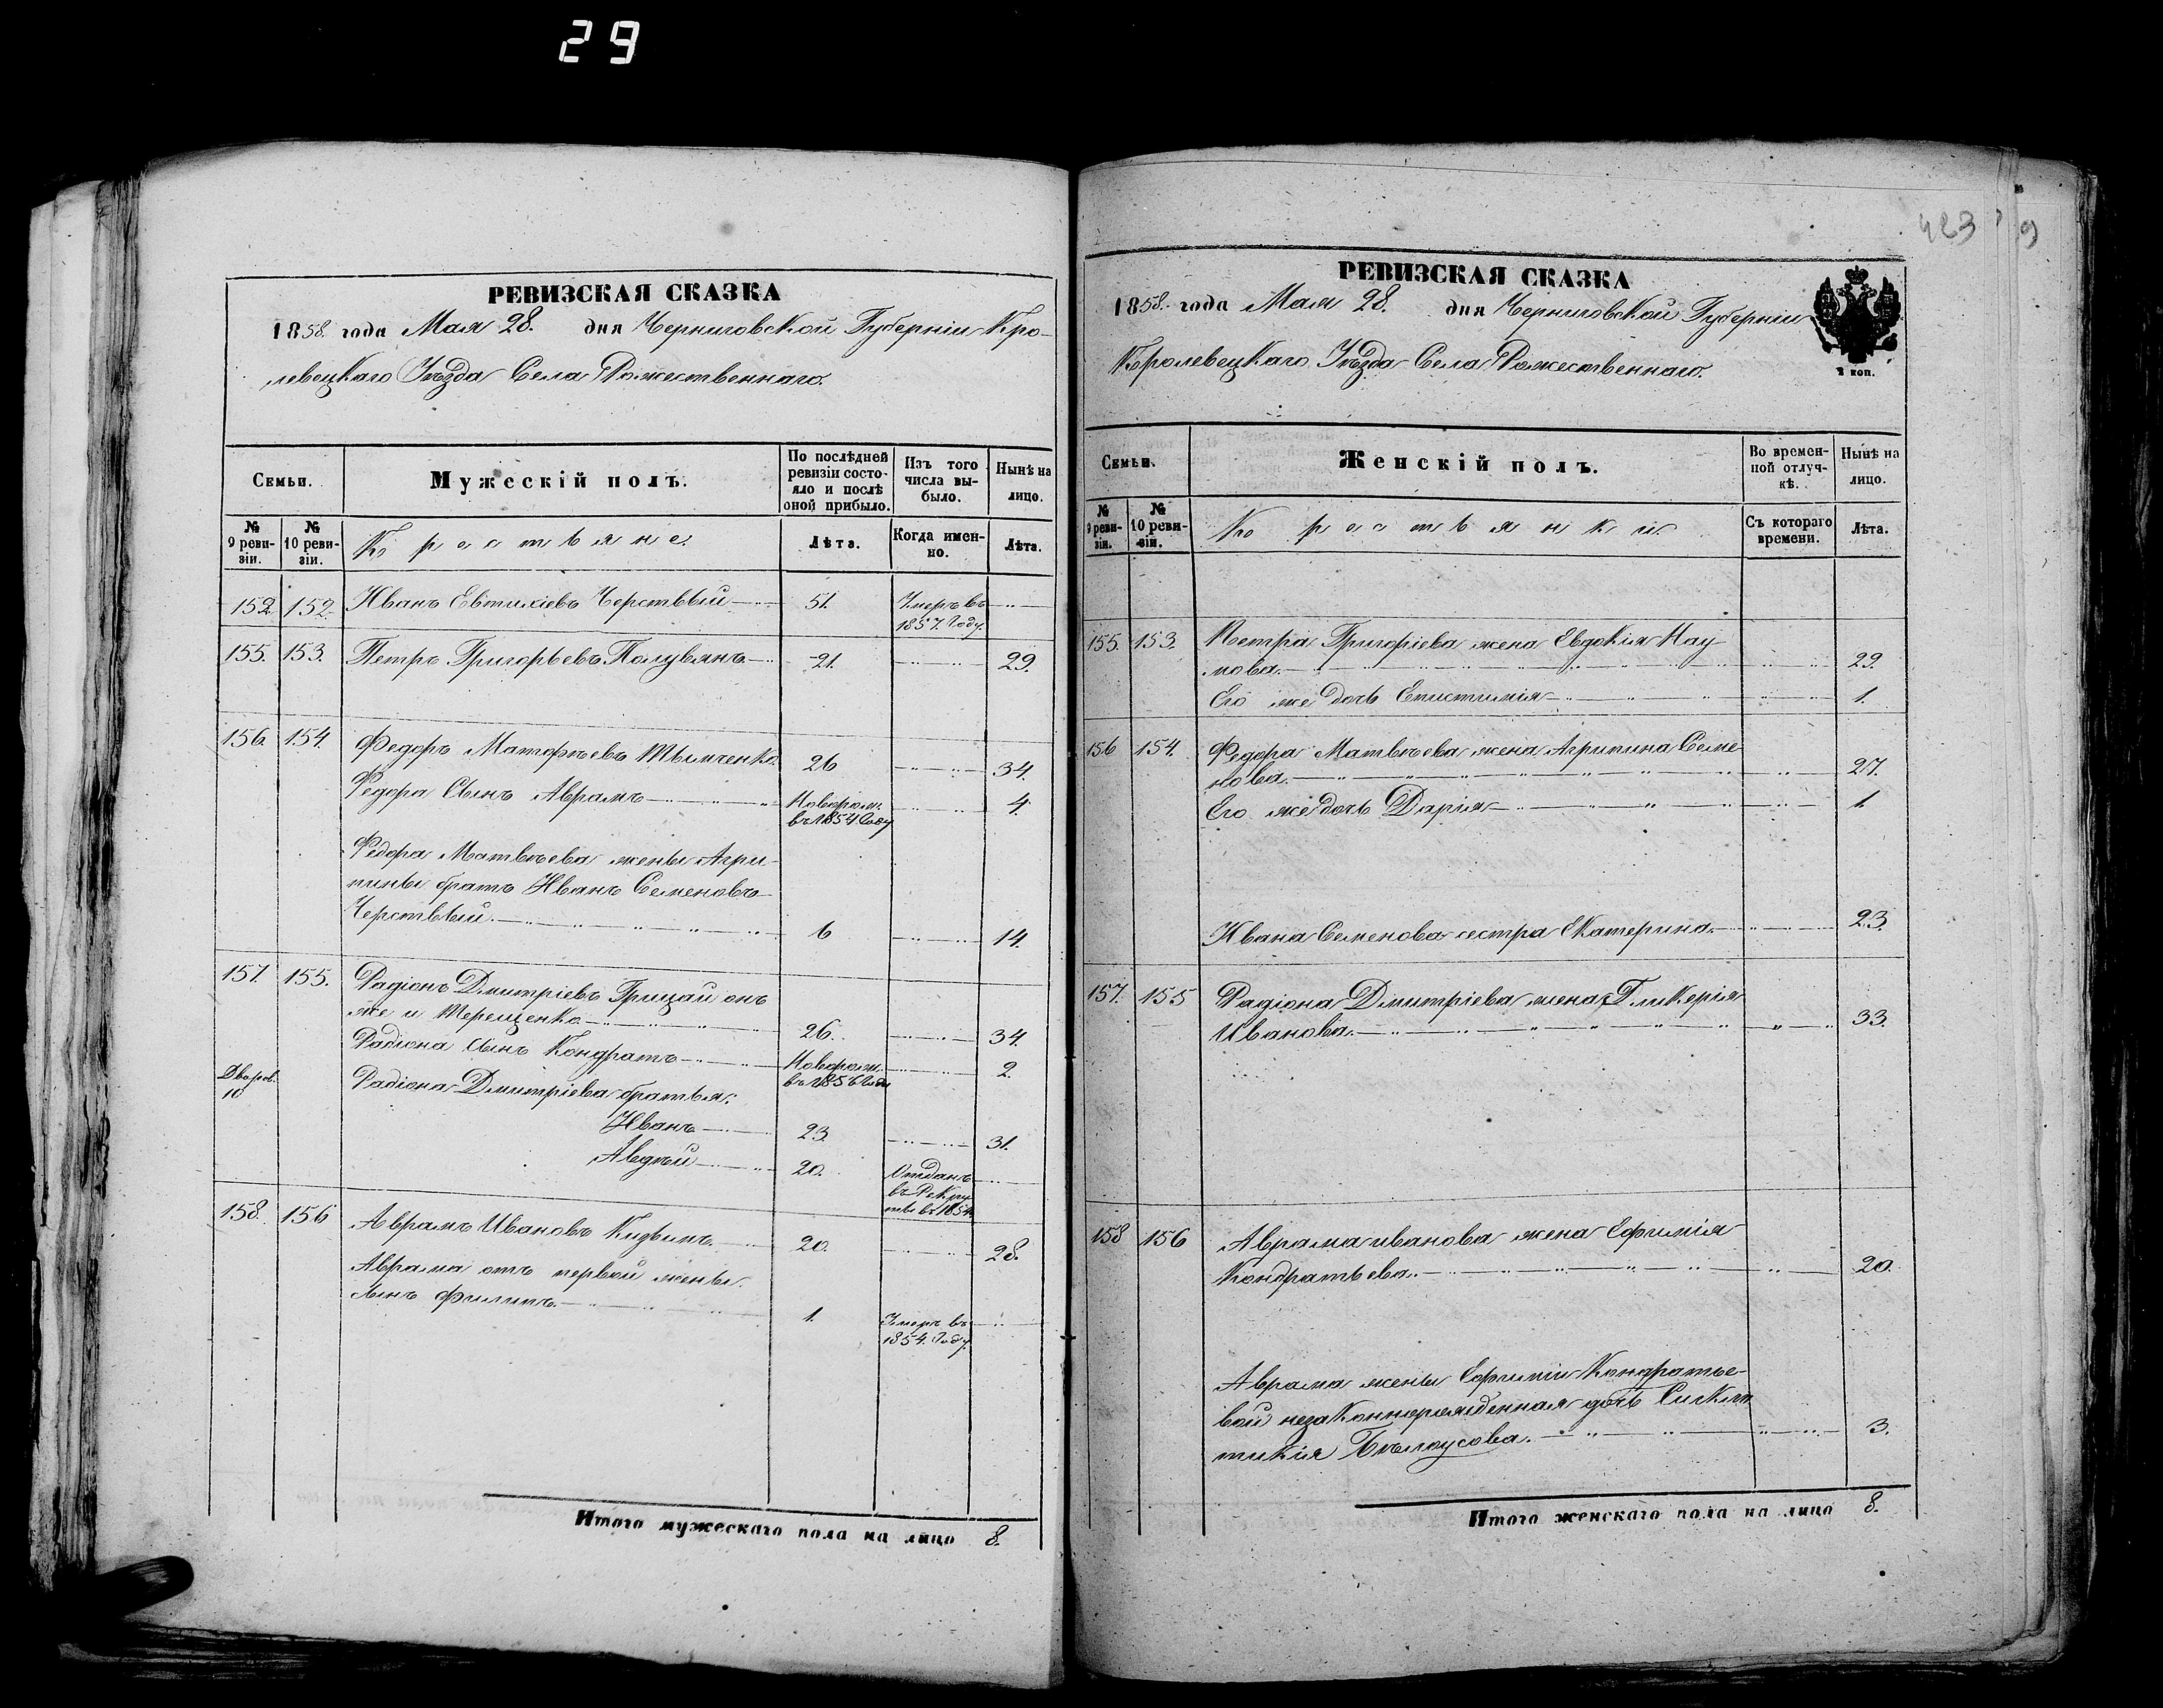 29
РЕВИЗСКАЯ СКАЗКА
1858. года Мая 28. дня Черниговской Губерніи Кро-
левецкаго Уѣзда Села Рожественнаго.
Семьи.
Мужескій полъ.
По послѣдней
ревизіи состо-
яло и послѣ
оной прибыло.
Изъ того
числа вы-
было.
Нынѣ на
лицо.
№
9 реви-
зіи.
№
10 реви-
зіи.
Крестьяне.
Лѣта.
Когда имен-
но.
Лѣта.
152. 152. Иванъ Евтихіевъ Черствый 51. Умеръ въ
1857. Году.
155. 153. Петръ Григорьевъ Полувянъ 21. 29.
156. 154. Федоръ Матфѣевъ 26 34.
Федора Сынъ Аврамъ Новорож. 4.
въ 1854 Году
Федора Матвѣева жены Агри-
пины братъ Иванъ Семеновъ
Черствый. 6 14.
157. 155. Радіонъ Дмитріевъ Грицай онъ
же и Терещенко 26. 34.
Радіона Сынъ Кондратъ Новорож. 2.
въ 1856 Году
Дворов.
10
Радіона Дмитріева братья:
Иванъ 23. 31.
Авдѣй 20. Отданъ
въ Рекру
ты въ 1854
158. 156 Аврамъ Ивановъ 20. 28.
Аврама отъ первой жены
сынъ Филипъ. 1. Умеръ въ
1854. Году.
Итого мужескаго пола на лицо 8.
423
9
РЕВИЗСКАЯ СКАЗКА
1858. года Мая 28. дня Черниговской Губерніи
Кролевецкаго Уѣзда Села Рожественнаго.
2 коп.
Семьи.
Женскій полъ.
Во времен-
ной отлуч-
кѣ.
Нынѣ на
лицо.
№
9 реви-
зіи.
№
10 реви-
зіи.
Крестьянки.
Съ котораго
времени.
Лѣта.
155. 153. Петра Григоріева жена Евдокія Нау
мова. 29.
Его же дочь Епистимія 1.
156 154. Федора Матвѣева жена Агрипина Семе
нова. 27.
Его же дочь Дарія 1.
Ивана Семенова сестра Екатерина. 23.
157. 155 Радіона Дмитріева жена Гликерія
Иванова. 33.
158 156 Аврама иванова жена Ефимія
Кондратьева. 20.
Аврама жены Ефиміи Кондратье-
вой незаконнорожденная дочь
Бѣлоусова. 3.
Итого женскаго пола на лицо 8.